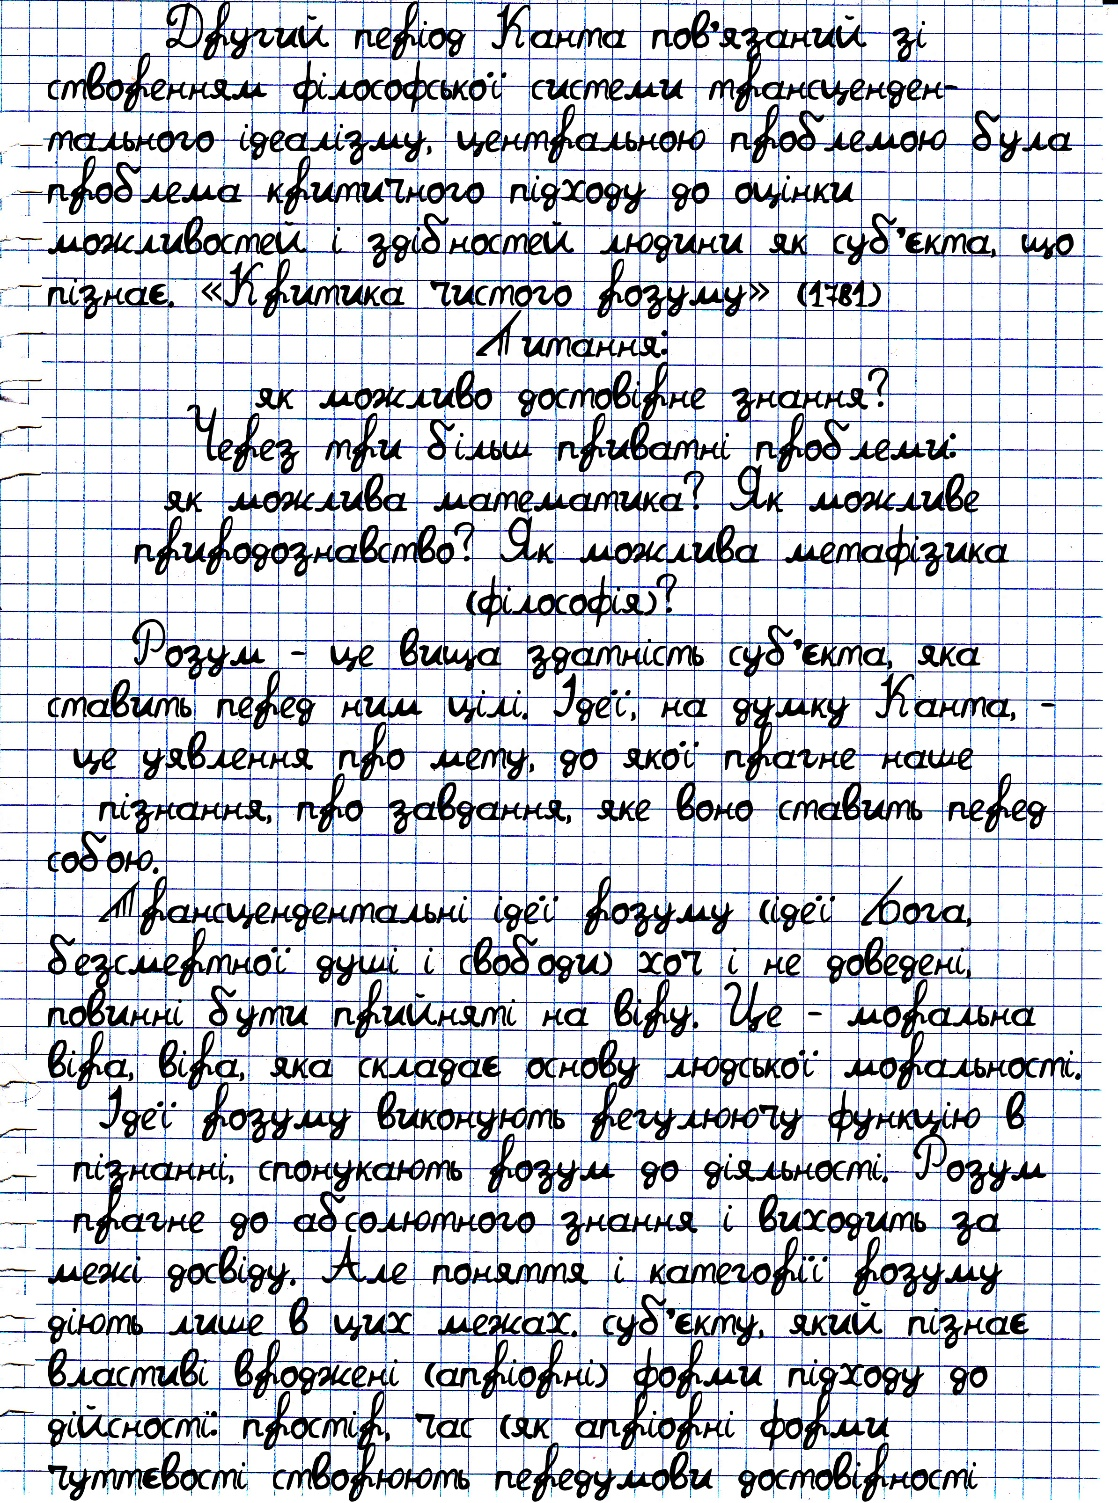 Другий період Канта пов'язаний зі
створенням філософської системи трансценден-
тального ідеалізму, центральною проблемою була
проблема критичного підходу до оцінки
можливостей і здібностей людини як суб'єкта, що
пізнає. «Критика чистого розуму» (1781)
Питання:
як можливо достовірне знання?
Через три більш приватні проблеми:
як можлива математика? Як можливе
природознавство? Як можлива метафізика
(філософія)?
Розум - це вища здатність суб'єкта, яка
ставить перед ним цілі. Ідеї, на думку Канта, -
це уявлення про мету, до якої прагне наше
пізнання, про завдання, яке воно ставить перед
собою.
Трансцендентальні ідеї розуму (ідеї Бога,
безсмертної душі і свободи) хоч і не доведені,
повинні бути прийняті на віру. Це - моральна
віра, віра, яка складає основу людської моральності.
Ідеї розуму виконують регулюючу функцію в
пізнанні, спонукають розум до діяльності. Розум
прагне до абсолютного знання і виходить за
межі досвіду. Але поняття і категорії розуму
діють лише в цих межах. суб'єкту, який пізнає
властиві вроджені (апріорні) форми підходу до
дійсності: простір, час (як апріорні форми
чуттєвості створюють передумови достовірності